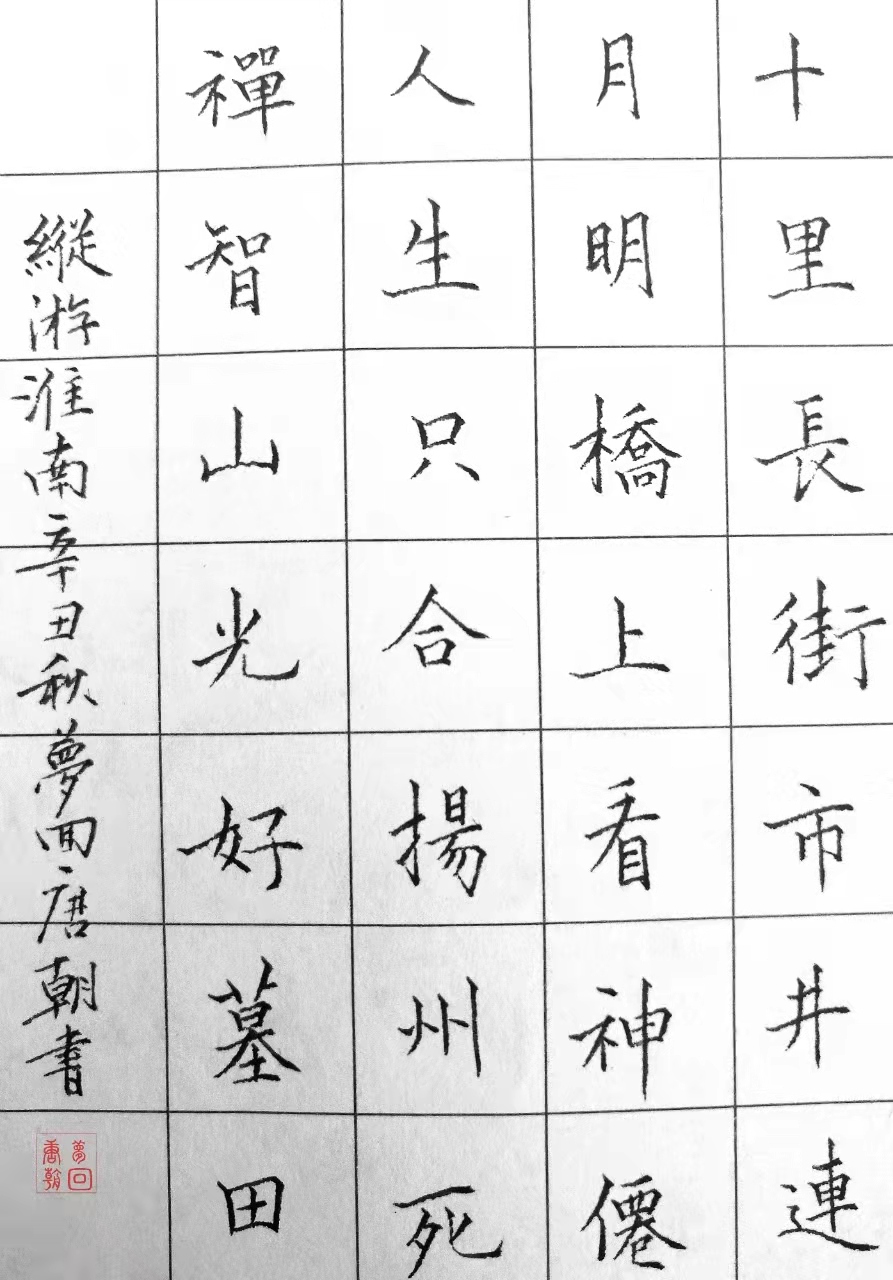 十里長街市井連
月明橋上看神僊
人生只合揚州死
禪智山光好墓田
縱游淮南辛丑秋夢回唐朝書
夢回唐朝